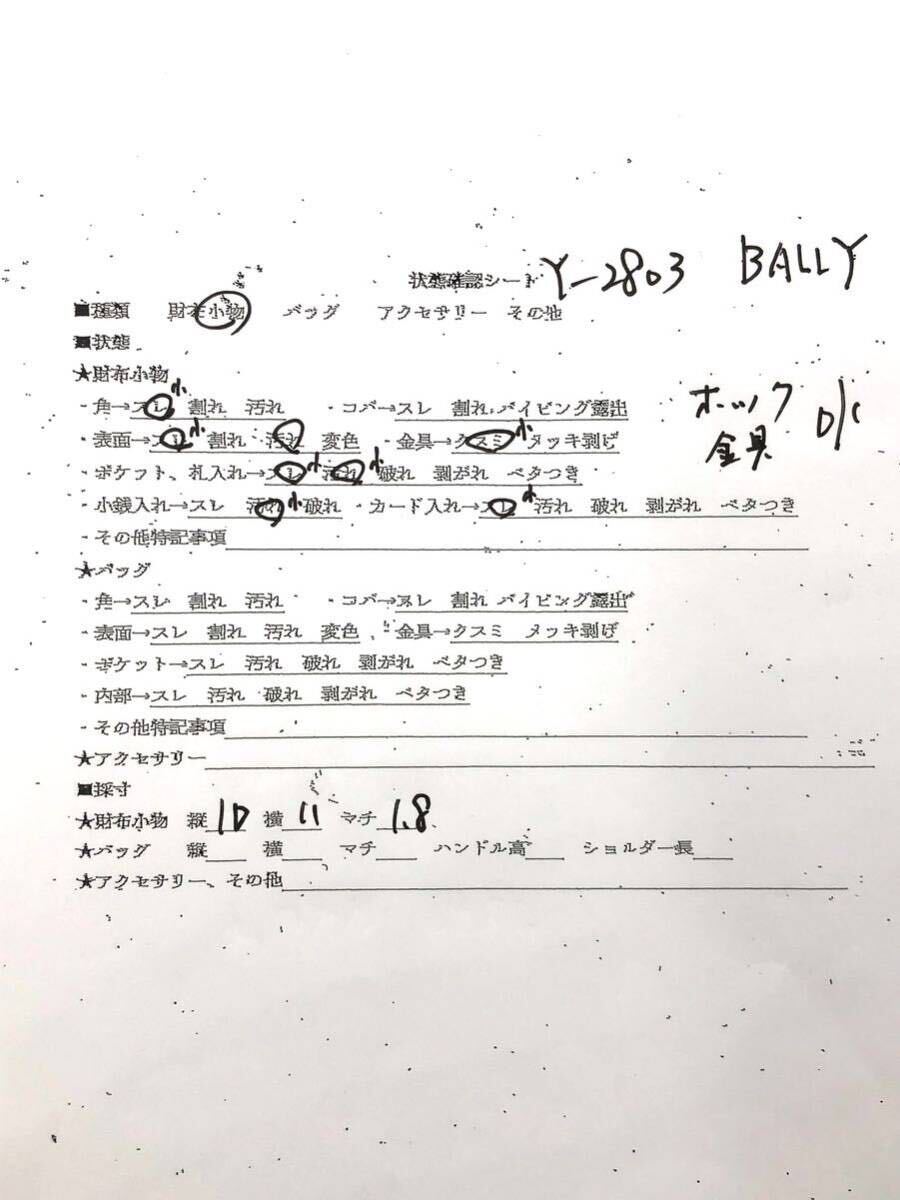 状態確認シート Y-2803 BALLY
■種類 財布小物 バッグ アクセサリー その他
■状態
★財布小物
小
・角→スレ 割れ 汚れ ・コバ→スレ 割れ パイピング露出
ホック
小 小
・表面→スレ 割れ 汚れ 変色 ・金具→クスミ メッキ剥げ
金具
小 小
・ポケット、札入れ→スレ 汚れ 破れ 剥がれ ベタつき
小 小
・小銭入れ→スレ 汚れ 破れ ・カード入れ→スレ 汚れ 破れ 剥がれ ベタつき
・その他特記事項
★バッグ
・角→スレ 割れ 汚れ ・コバ→スレ 割れ パイピング露出
・表面→スレ 割れ 汚れ 変色 ・金具→クスミ メッキ剥げ
・ポケット→スレ 汚れ 破れ 剥がれ ベタつき
・内部→スレ 汚れ 破れ 剥がれ ベタつき
・その他特記事項
★アクセサリー
■採寸
★財布小物 縦 10 横 11 マチ 1.8
★バッグ 縦 横 マチ ハンドル高 ショルダー長
★アクセサリー、その他